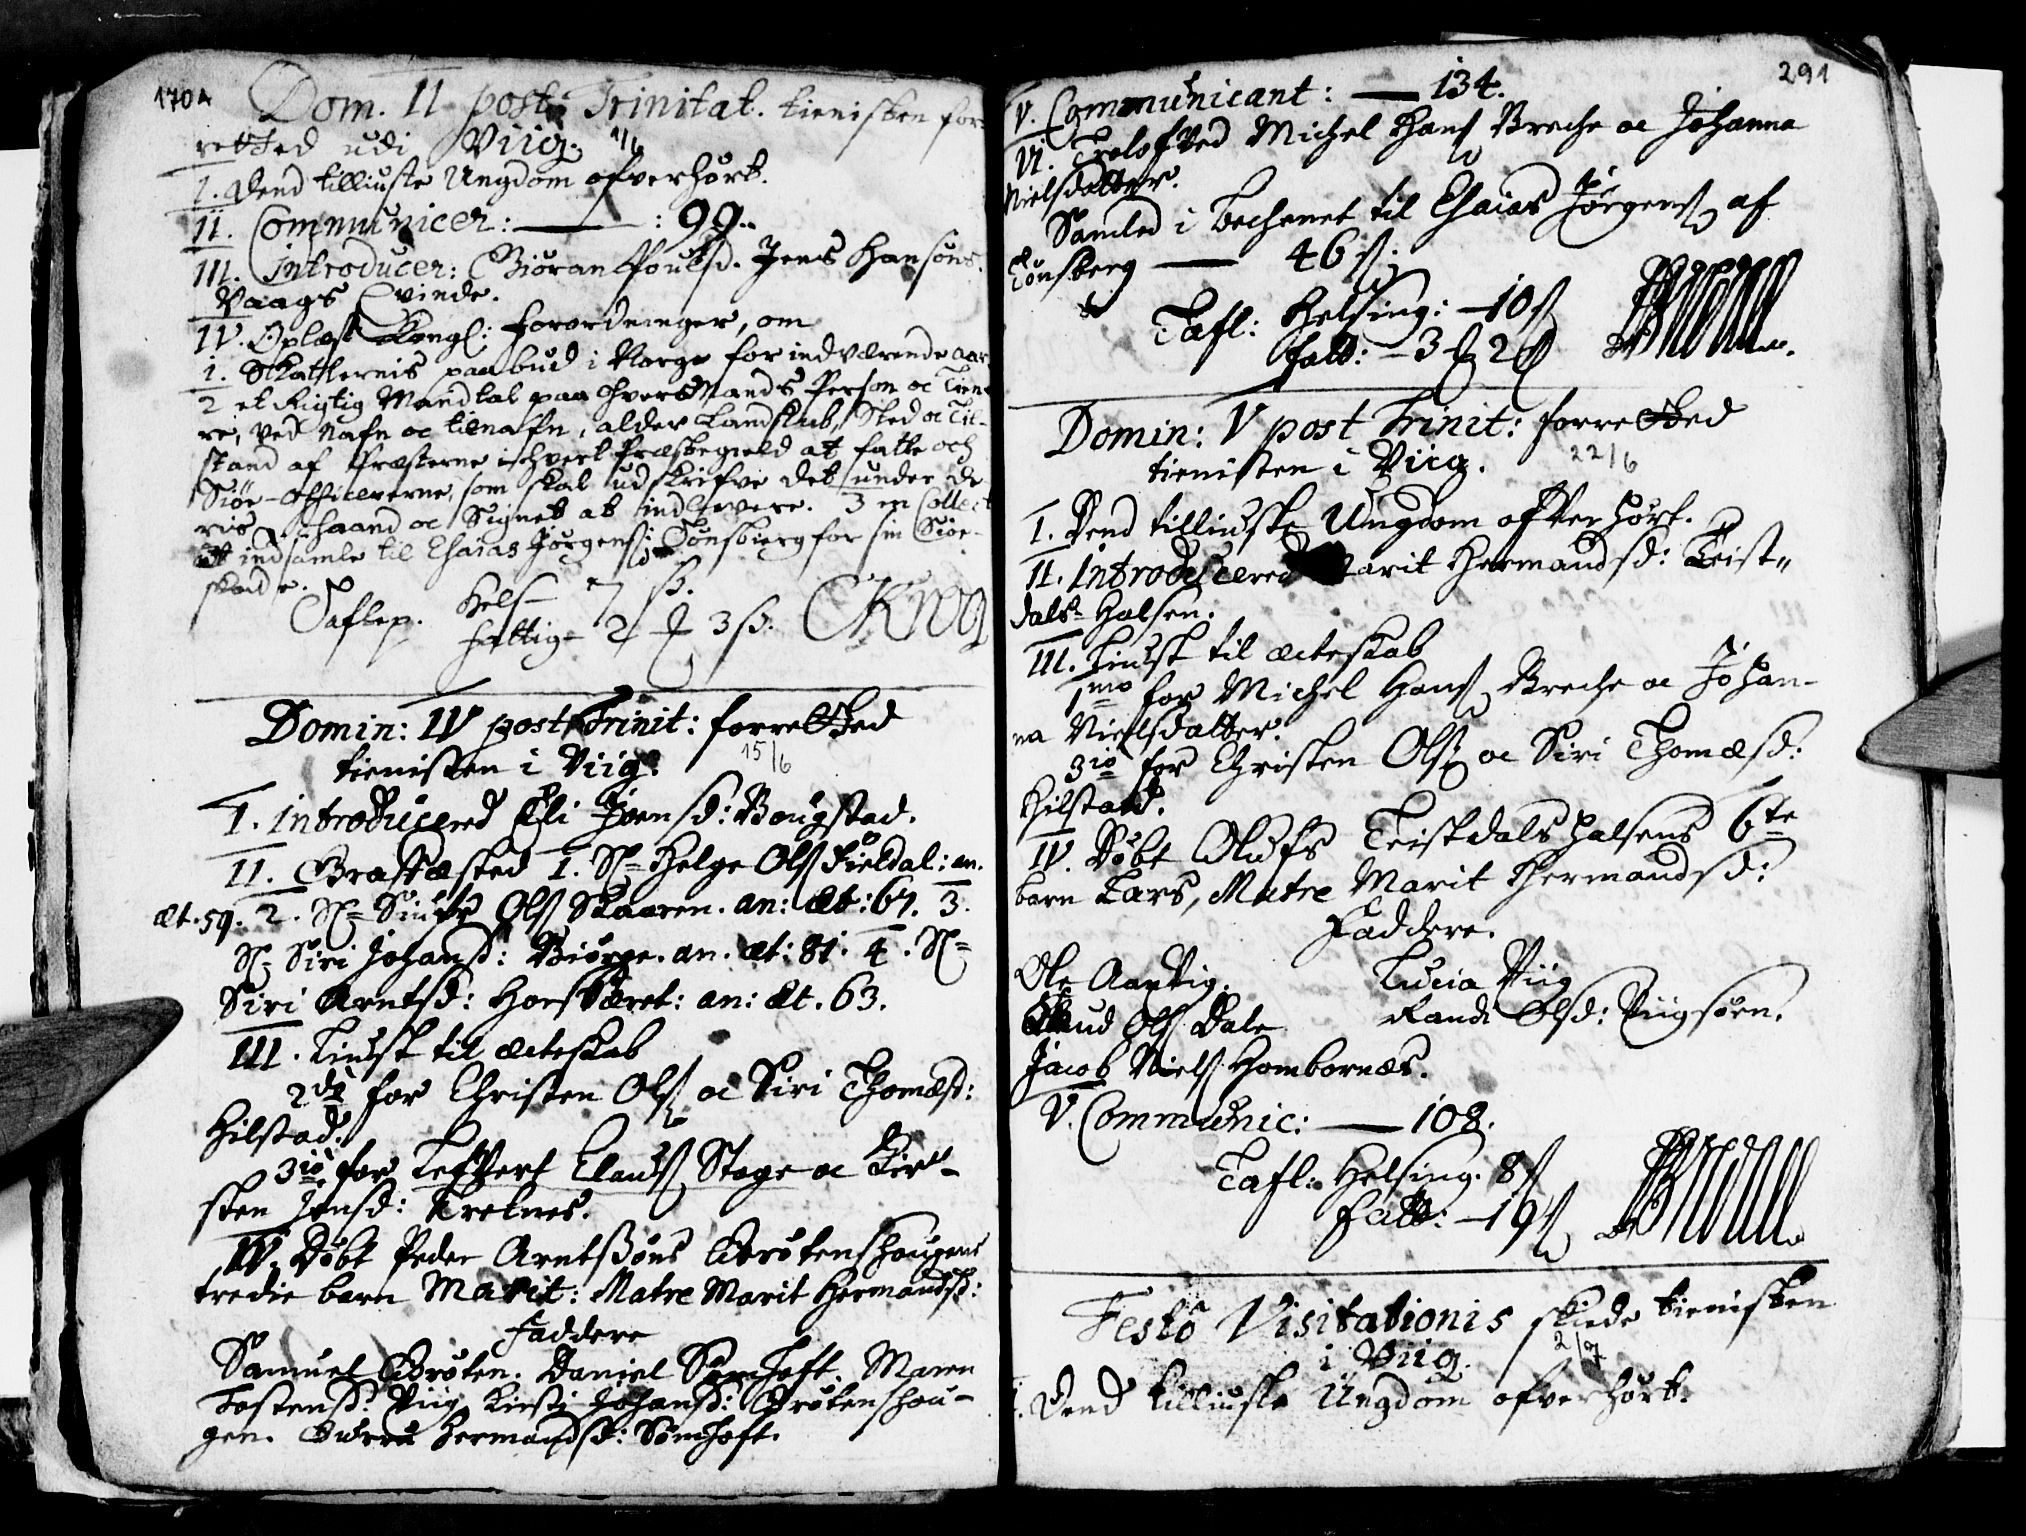 1704
Dom. II post Trinitat. tienisten for-
retted udi Viig. 1/6
I. Dend tilliuste Ungdom ofverhørt.
II. Communicer: — : 99.
III. Introducer: Giøran Poulsd. Jens Hansøns
Vaags Qvinde.
IV. Oplæst Kongl: Forordninger, om
1. Skatternis paabud i Norge for indværende aar
2 et Rigtig Mandtal paa hver Mands Person oc Tiene-
re, ved Nafn oc tilnafn, alder Landskab, Sted oc Til-
stand af Præsterne i hvert Præstegield at fatte och
Siøe-Officererne, som skal udskrifve det under de-
ris haand oc Signet at indlevere. 3 en Collect
at indsamle til Esaias Jørgens: Tønsbierg for sin Siøe-
skade.
Taflep. Hels- 7 ß.
fattig- 2 ₰ 3 ß. CKrog
Domin: IV post Trinit: forretted
tienisten i Viig. 15/6
I. Introducered Eli Joensd: Bougstad.
II. Græstæsted 1. Sl= Helge Ols Fieldal: an.
æt. 59. 2. Sl= Siufr Ols Skaaren. an: æt: 67. 3.
Sl= Siri Johansd: Biørge. an. æt: 81. 4. Sl=
Siri Arntsd: Horsværet: an: æt. 63.
III. Liust til ecteskab
2do for Christen Ols oc Siri Thomæsd:
Hilstad.
3io for Leffvert Claus Stage oc Kir-
sten Jensd: Kretnes.
IV. Døbt Peder Arntsøns Brøtenshougens
tredie barn Marit: Matre Marit Hermandsd:
Faddere
Samuel Brøten. Daniel Sømhoft. Maren
Tostensd: Viig Kirsti Johansd: Brøtenshou-
gen. Hermandsd: Sømhoft.
291
V. Communicant: — 134.
VI. Trolofved Michel Hans Breche oc Johanna
Nielsdatter.
Samled i Bechenet til Esaias Jørgens af
Tønsberg — 46 ß.
Tafl: Helsing: — 10 ß
fatt: — 3 ₰ 2 ß
Domin: V post Trinit: forretted
tienisten i Viig. 22/6
I. Dend tilliuste Ungdom offverhørt.
II. Introducered Marit Hermandsd: Teist-
dals Halsen.
III. Liust til ecteskab
1mo for Michel Hans Breche oc Johan-
na Nielsdatter.
3io for Christen Ols oc Siri Thomæsd:
Hilstad.
IV. Døbt Olufs Teistdalshalsens 6te
barn Lars, Matre Marit Hermandsd:
Faddere.
Ole Aarvig. Lucia Viig
Knud Ols Dale Randi Olsd: Viigsøen.
Jacob Niels Hombornæs.
V. Communic: — 108.
Tafl: Helsing. 8 ß
Fatt: — 19 ß
Festo Visitationis skiede tienisten
i Viig. 2/7
I. Dend tilliuste Ungdom ofverhørt.